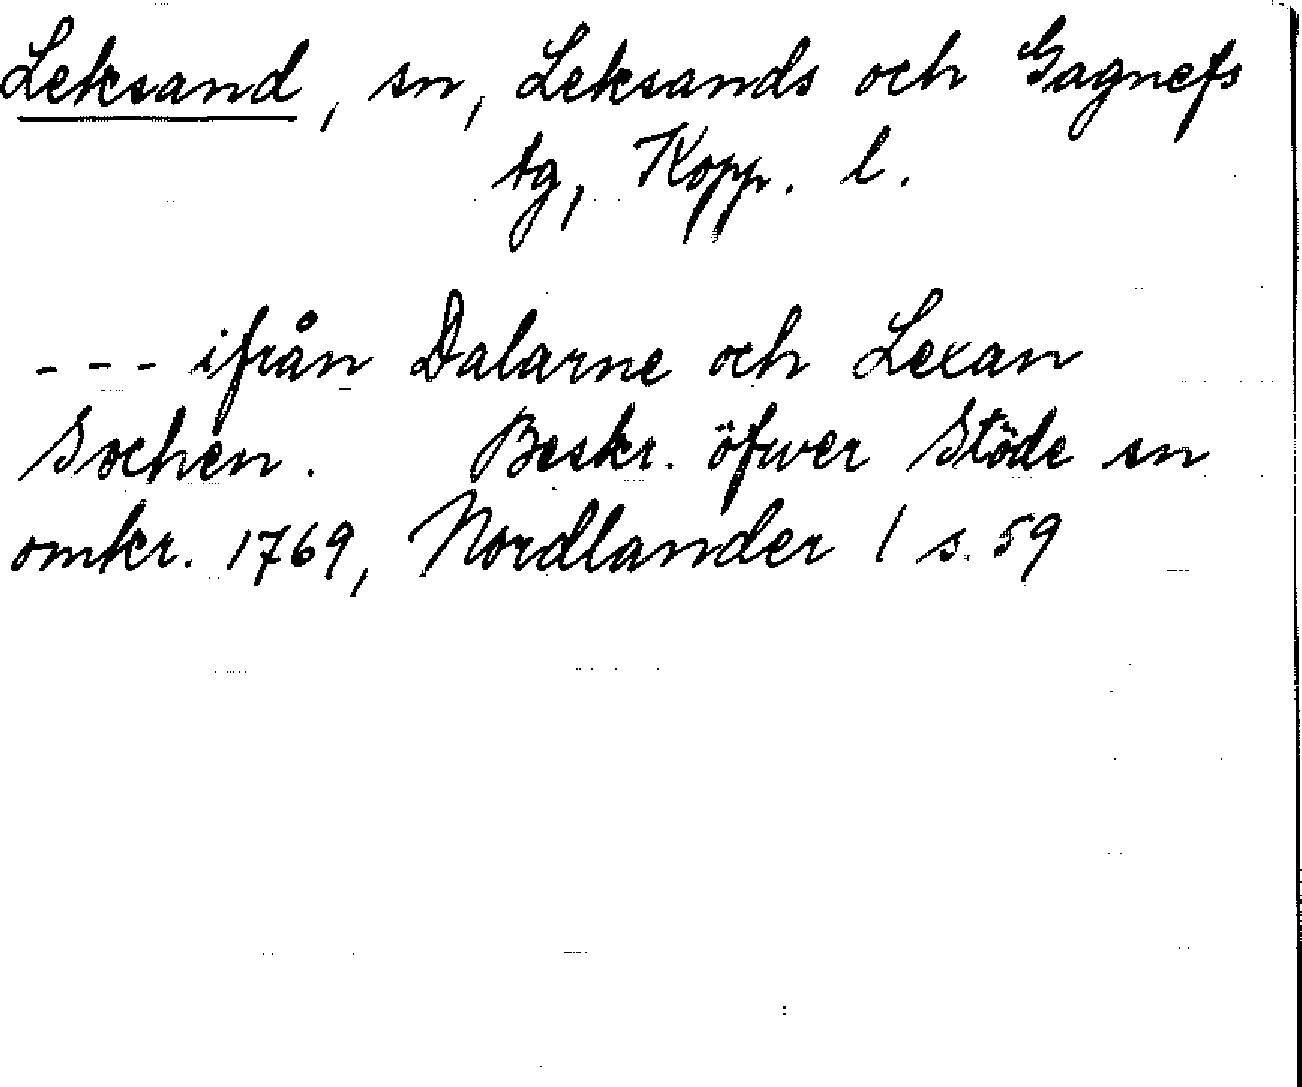 Leksand, sn, Leksands och Gagnefs
tg, Kopp. l.
--- ifrån Dalarne och Lexan
Sochen. Beskr. öfwer Stöde sn
omkr. 1769, Nordlander 1 s. 59